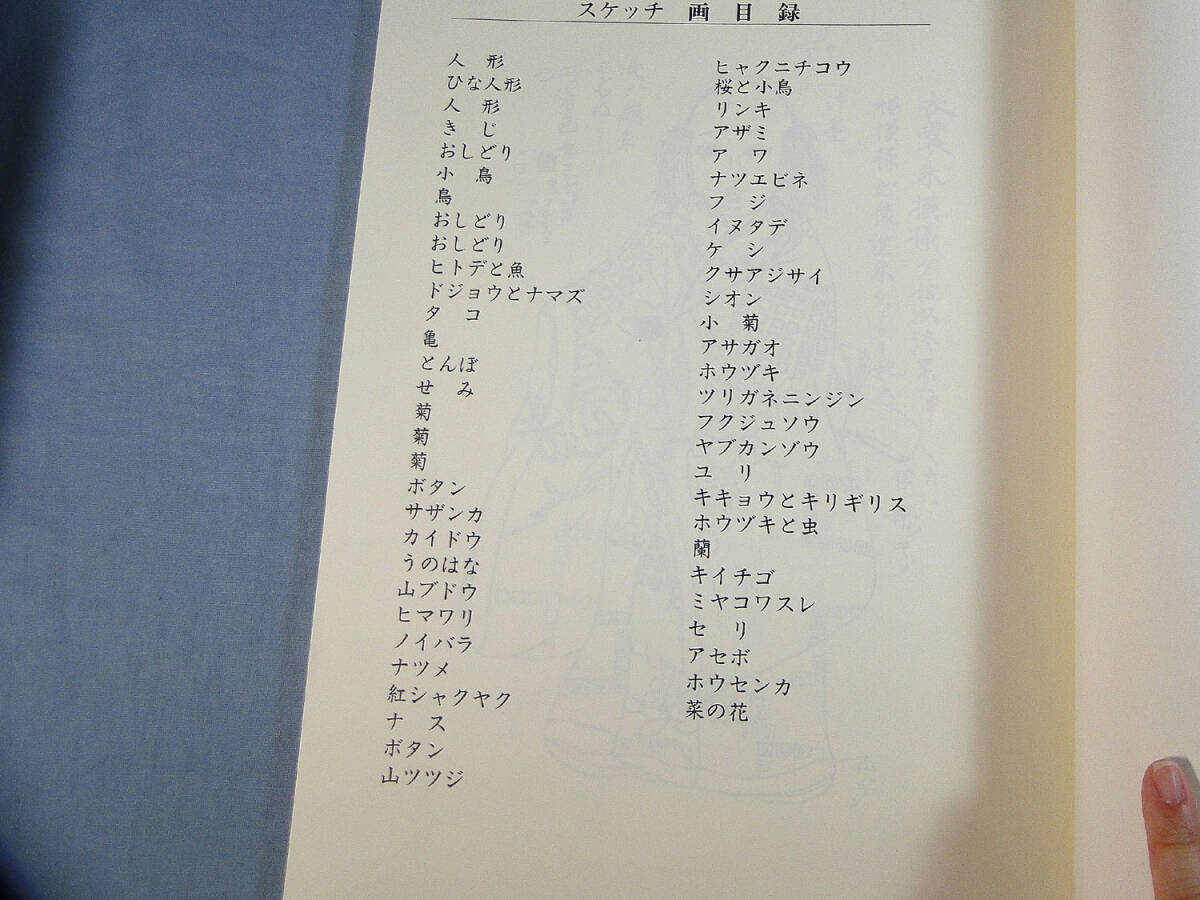 スケッチ 画目録
人形
ひな人形
人形
きじ
おしどり
小鳥
鳥
おしどり
おしどり
ヒトデと魚
ドジョウとナマズ
タコ
亀
とんぼ
せみ
菊
菊
菊
ボタン
サザンカ
カイドウ
うのはな
山ブドウ
ヒマワリ
ノイバラ
ナツメ
紅シャクヤク
ナス
ボタン
山ツツジ
ヒャクニチコウ
桜と小鳥
リンキ
アザミ
アワ
ナツエビネ
フジ
イヌタデ
ケシ
クサアジサイ
シオン
小菊
アサガオ
ホウヅキ
ツリガネニンジン
フクジュソウ
ヤブカンゾウ
ユリ
キキョウとキリギリス
ホウヅキと虫
蘭
キイチゴ
ミヤコワスレ
セリ
アセボ
ホウセンカ
菜の花